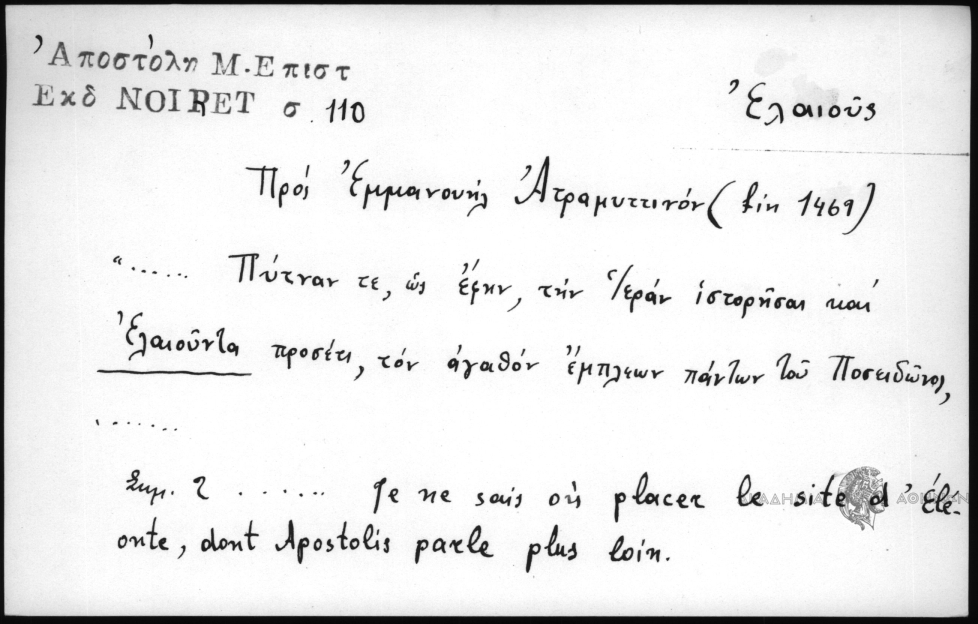 Ἀποστόλη Μ. Επιστ
Εκδ NOIRET σ 110
Ἐλαιοῦς
Πρός Ἐμμανουήλ Ἀτραμυττινόν (fin 1469)
"...... Πύτναν τε, ὡς ἔφην, τήν Ἱεράν ἱστορῆσαι καί
Ἐλαιοῦντα προσέτι, τόν ἀγαθόν ἔμπλεων πάντων τοῦ Ποσειδῶνος,
.......
Σημ. 2 ....... Je ne sais où placer le site d'Élé-
onte, dont Apostolis parle plus loin.
ΑΚΑΔΗΜΙΑ ΑΘΗΝΩΝ